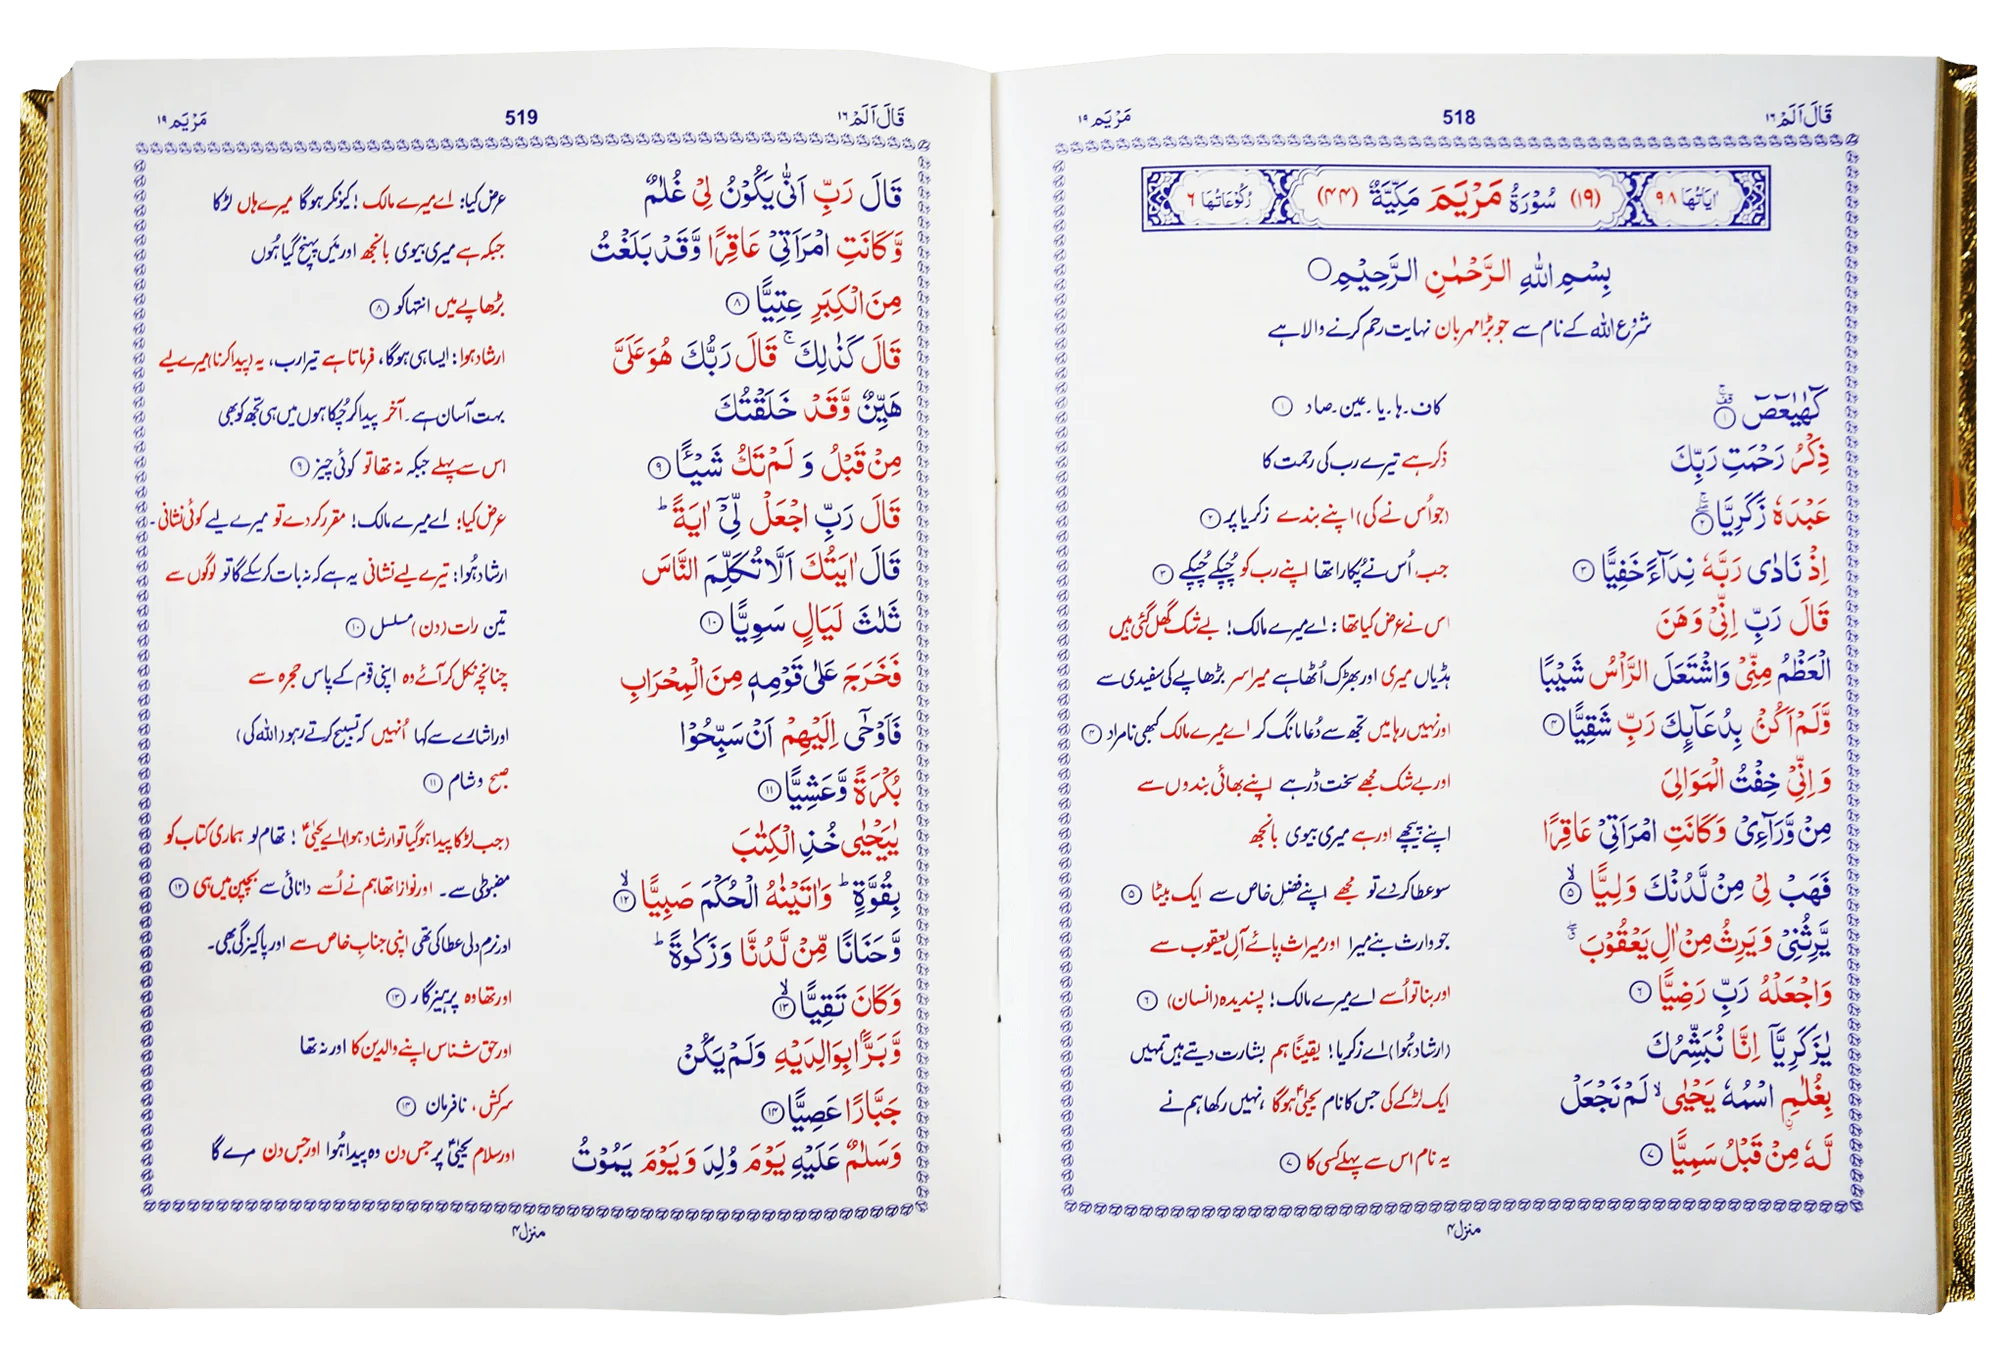 قَالَ اَلَمْ ١٦
518
مَرْيَم ١٩
اٰيَاتُهَا ٩٨
(١٩) سُوْرَةُ مَرْيَمَ مَكِّيَّةٌ (٤٤)
رُكُوْعَاتُهَا ٦
بِسْمِ اللّٰهِ الرَّحْمٰنِ الرَّحِيْمِ
شروع اللہ کے نام سے جو بڑا مہربان نہایت رحم کرنے والا ہے
كٓهٰيٰعٓصٓ ۚ ۖ ١ کاف۔ہا۔یا۔عین۔صاد ١
ذِكْرُ رَحْمَتِ رَبِّكَ ذکر ہے تیرے رب کی رحمت کا
عَبْدَهٗ زَكَرِيَّا ۖ ۚ ٢ (جو اُس نے کی) اپنے بندے زکریا پر ٢
اِذْ نَادٰى رَبَّهٗ نِدَآءً خَفِيًّا ٣ جب اُس نے پُکارا تھا اپنے رب کو چُپکے چُپکے ٣
قَالَ رَبِّ اِنِّيْ وَهَنَ اس نے عرض کیا تھا: اے میرے مالک! بے شک گھل گئی ہیں
الْعَظْمُ مِنِّيْ وَاشْتَعَلَ الرَّاْسُ شَيْبًا ہڈیاں میری اور بھڑک اُٹھا ہے میرا سر بڑھاپے کی سفیدی سے
وَّلَمْ اَكُنْۢ بِدُعَآىِٕكَ رَبِّ شَقِيًّا ٤ اور نہیں رہا میں تجھ سے دُعا مانگ کر اے میرے مالک کبھی نامراد ٤
وَاِنِّيْ خِفْتُ الْمَوَالِيَ اور بے شک مجھے سخت ڈر ہے اپنے بھائی بندوں سے
مِنْ وَّرَآءِيْ وَكَانَتِ امْرَاَتِيْ عَاقِرًا اپنے پیچھے اور ہے میری بیوی بانجھ
فَهَبْ لِيْ مِنْ لَّدُنْكَ وَلِيًّا ۙ ٥ سو عطا کر دے تو مجھے اپنے فضل خاص سے ایک بیٹا ٥
يَّرِثُنِيْ وَيَرِثُ مِنْ اٰلِ يَعْقُوْبَ ۖ جو وارث بنے میرا اور میراث پائے آلِ یعقوب سے
وَاجْعَلْهُ رَبِّ رَضِيًّا ٦ اور بنا تو اُسے اے میرے مالک! پسندیدہ (انسان) ٦
يٰزَكَرِيَّآ اِنَّا نُبَشِّرُكَ (ارشاد ہُوا) اے زکریا! یقیناً ہم بشارت دیتے ہیں تمہیں
بِغُلٰمِ ۟اسْمُهٗ يَحْيٰى ۙ لَمْ نَجْعَلْ ایک لڑکے کی جس کا نام یحییٰؑ ہو گا، نہیں رکھا ہم نے
لَّهٗ مِنْ قَبْلُ سَمِيًّا ٧ یہ نام اس سے پہلے کسی کا ٧
منزل ٤
قَالَ اَلَمْ ١٦
519
مَرْيَم ١٩
قَالَ رَبِّ اَنّٰى يَكُوْنُ لِيْ غُلٰمٌ عرض کیا: اے میرے مالک! کیونکر ہو گا میرے ہاں لڑکا
وَّكَانَتِ امْرَاَتِيْ عَاقِرًا وَّقَدْ بَلَغْتُ جبکہ ہے میری بیوی بانجھ اور میں پہنچ گیا ہُوں
مِنَ الْكِبَرِ عِتِيًّا ٨ بڑھاپے میں انتہا کو ٨
قَالَ كَذٰلِكَ ۚ قَالَ رَبُّكَ هُوَ عَلَيَّ ارشاد ہوا: ایسا ہی ہو گا، فرماتا ہے تیرا رب، یہ (پیدا کرنا) میرے لیے
هَيِّنٌ وَّقَدْ خَلَقْتُكَ بہت آسان ہے۔ آخر پیدا کر چُکا ہوں میں ہی تجھ کو بھی
مِنْ قَبْلُ وَلَمْ تَكُ شَيْـًٔا ٩ اس سے پہلے جبکہ نہ تھا تو کوئی چیز ٩
قَالَ رَبِّ اجْعَلْ لِّيْٓ اٰيَةً ؕ عرض کیا: اے میرے مالک! مقرر کر دے تو میرے لیے کوئی نشانی۔
قَالَ اٰيَتُكَ اَلَّا تُكَلِّمَ النَّاسَ ارشاد ہُوا: تیرے لیے نشانی یہ ہے کہ نہ بات کر سکے گا تو لوگوں سے
ثَلٰثَ لَيَالٍ سَوِيًّا ١٠ تین رات (دن) مسلسل ١٠
فَخَرَجَ عَلٰى قَوْمِهٖ مِنَ الْمِحْرَابِ چنانچہ نکل کر آئے وہ اپنی قوم کے پاس حجرہ سے
فَاَوْحٰٓى اِلَيْهِمْ اَنْ سَبِّحُوْا اور اشارے سے کہا اُنہیں کہ تسبیح کرتے رہو (اللہ کی)
بُكْرَةً وَّعَشِيًّا ١١ صبح و شام ١١
يٰيَحْيٰى خُذِ الْكِتٰبَ (جب لڑکا پیدا ہو گیا تو ارشاد ہوا) اے یحییٰؑ! تھام لو ہماری کتاب کو
بِقُوَّةٍ ؕ وَاٰتَيْنٰهُ الْحُكْمَ صَبِيًّا ۙ ١٢ مضبوطی سے۔ اور نوازا تھا ہم نے اُسے دانائی سے بچپن میں ہی ١٢
وَّحَنَانًا مِّنْ لَّدُنَّا وَزَكٰوةً ؕ اور نرم دلی عطا کی تھی اپنی جنابِ خاص سے اور پاکیزگی بھی۔
وَكَانَ تَقِيًّا ۙ ١٣ اور تھا وہ پرہیز گار ١٣
وَّبَرًّۢا بِوَالِدَيْهِ وَلَمْ يَكُنْ اور حق شناس اپنے والدین کا اور نہ تھا
جَبَّارًا عَصِيًّا ١٤ سرکش، نافرمان ١٤
وَسَلٰمٌ عَلَيْهِ يَوْمَ وُلِدَ وَيَوْمَ يَمُوْتُ اور سلام یحییٰؑ پر جس دن وہ پیدا ہُوا اور جس دن مرے گا
منزل ٤